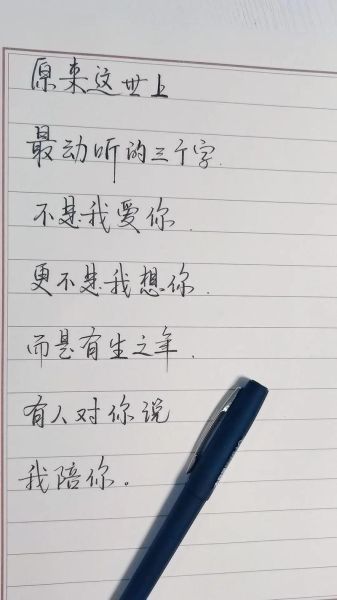 原来这世上
最动听的三个字.
不是我爱你.
更不是我想你.
而是有生之年.
有人对你说
我陪你。